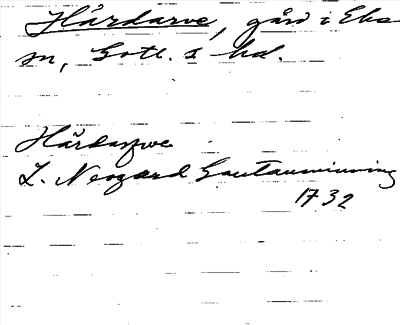 Hårdarve, gård i Eks
sn, Gotl. s hd.
Hårdarfwe
L. Neogard Gautauminning
1732